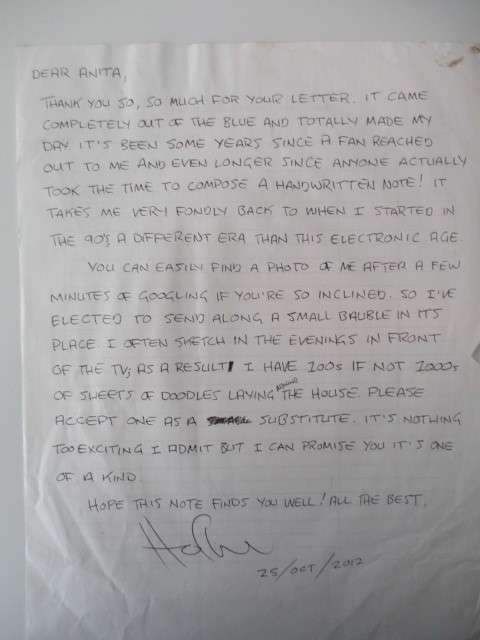 DEAR ANITA,
THANK YOU SO, SO MUCH FOR YOUR LETTER. IT CAME
COMPLETELY OUT OF THE BLUE AND TOTALLY MADE MY
DAY. IT'S BEEN SOME YEARS SINCE A FAN REACHED
OUT TO ME AND EVEN LONGER SINCE ANYONE ACTUALLY
TOOK THE TIME TO COMPOSE A HANDWRITTEN NOTE! IT
TAKES ME VERY FONDLY BACK TO WHEN I STARTED IN
THE 90'S A DIFFERENT ERA THAN THIS ELECTRONIC AGE.
YOU CAN EASILY FIND A PHOTO OF ME AFTER A FEW
MINUTES OF GOOGLING IF YOU'RE SO INCLINED. SO I'VE
ELECTED TO SEND ALONG A SMALL BAUBLE IN ITS
PLACE. I OFTEN SKETCH IN THE EVENINGS IN FRONT
OF THE TV; AS A RESULT I HAVE 100s IF NOT 1000s
OF SHEETS OF DOODLES LAYING AROUND THE HOUSE. PLEASE
ACCEPT ONE AS A SUBSTITUTE. IT'S NOTHING
TOO EXCITING I ADMIT BUT I CAN PROMISE YOU IT'S ONE
OF A KIND.
HOPE THIS NOTE FINDS YOU WELL! ALL THE BEST,
25/OCT/2012